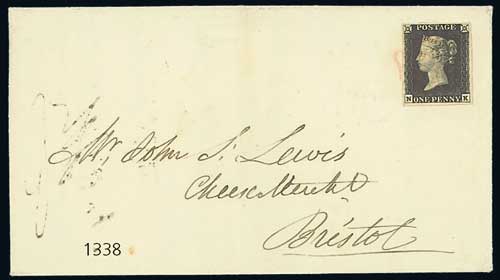 POSTAGE
N K
ONE PENNY
Mr, John S. Lewis
Cheese Mercht
Bristol
1338